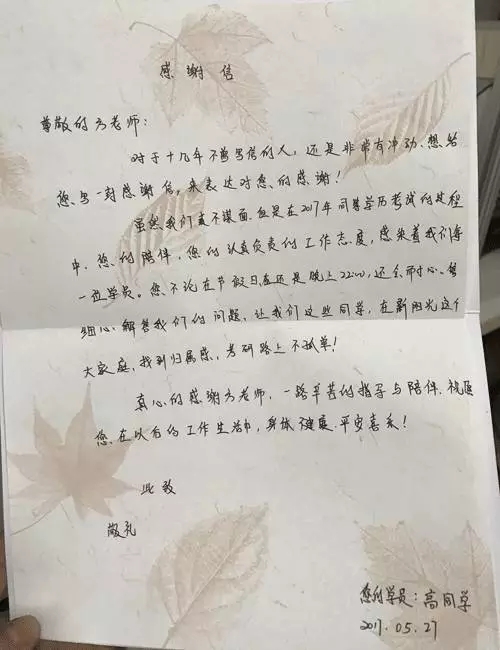 感谢信
尊敬的方老师：
对于十几年不曾写信的人，还是非常有冲动，想给
您写一封感谢信，来表达对您的感谢！
虽然我们素不谋面，但是在2017年同等学历考试的过程
中，您的陪伴，您的认真负责的工作态度，感染着我们每
一位学员。您不论在节假日，还是晚上22:00，还会耐心、
细心解答我们的问题，让我们这些同学，在新阳光这个
大家庭，找到归属感，考研路上不孤单！
真心的感谢方老师，一路辛苦的指导与陪伴，祝愿
您在以后的工作生活中，身体健康，平安喜乐！
此致
敬礼
您的学员：高同学
2017.05.27